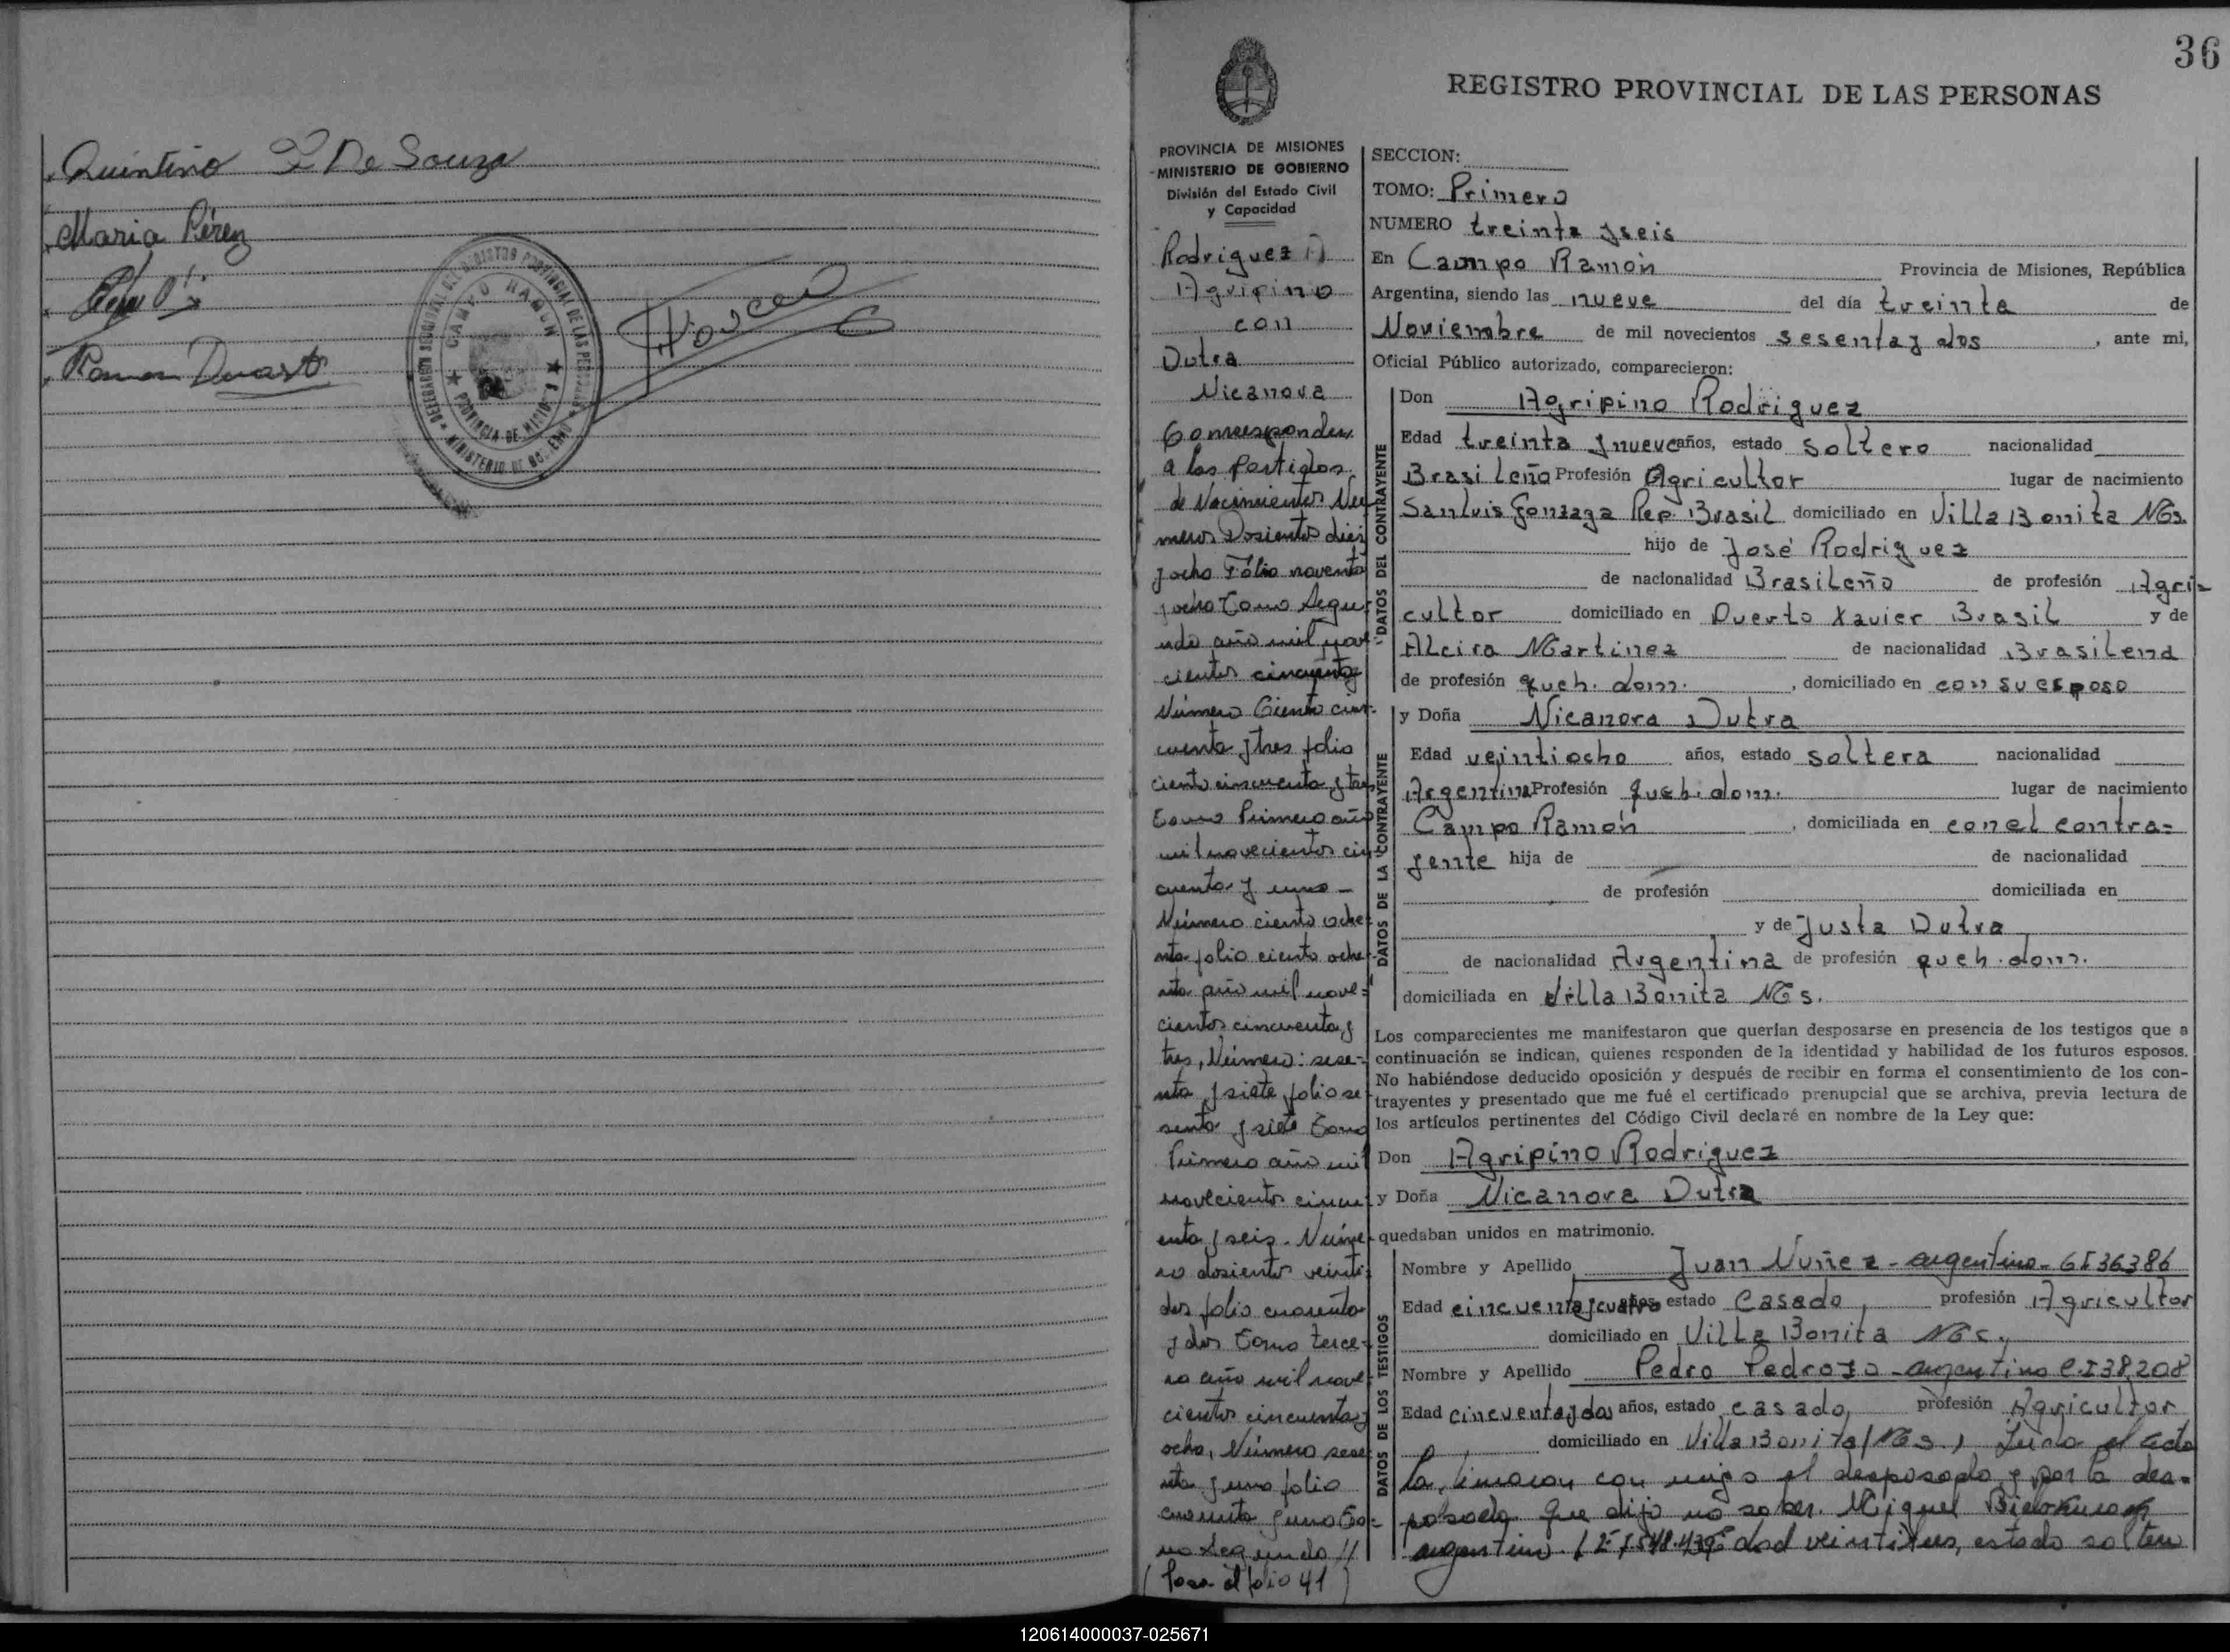 Quintino F De Souza
Maria Pérez
Ramon Duarte
DELEGACION SECCIONAL DEL REGISTRO PROVINCIAL DE LAS PERSONAS
CAMPO RAMON
PROVINCIA DE MISIONES
MINISTERIO DE GOBIERNO
36
REGISTRO PROVINCIAL DE LAS PERSONAS
PROVINCIA DE MISIONES
MINISTERIO DE GOBIERNO
División del Estado Civil
y Capacidad
Rodriguez
Agripino
con
Dutra
Nicanora
Corresponden
a las Partidas
de Nacimientos Nu
meros Dosientos dies
y ocho Folio noventa
y ocho Tomo Segu-
ndo año mil nove-
cientos cincuenta
Número Ciento cin-
cuenta y tres folio
ciento cincuenta y tres
Tomo Primero año
mil novecientos cin-
cuenta y uno -
Número ciento oche-
nta folio ciento oche-
nta año mil nove=
cientos cincuenta y
tres, Número: sese-
nta y siete folio se-
senta y siete Tomo
Primero año mil
novecientos cincu-
enta y seis - Núme-
ro dosientos veinti-
dos folio cuarenta
y dos Tomo terce-
ro año mil nove-
cientos cincuenta y
ocho, Número sese-
nta y uno folio
cuarenta y uno To-
mo Segundo //
(Pasa al folio 41)
SECCION:
TOMO: Primero
NUMERO treinta y seis
En Campo Ramón Provincia de Misiones, República
Argentina, siendo las nueve del día treinta de
Noviembre de mil novecientos sesenta y dos, ante mi,
Oficial Público autorizado, comparecieron:
DATOS DEL CONTRAYENTE
Don Agripino Rodriguez
Edad treinta y nueve años, estado soltero nacionalidad
Brasileño Profesión Agricultor lugar de nacimiento
San Luis Gonzaga Rep. Brasil domiciliado en Villa Bonita Ms.
hijo de José Rodriguez
de nacionalidad Brasileño de profesión Agri-
cultor domiciliado en Puerto Xavier Brasil y de
Alcira Martinez de nacionalidad Brasilena
de profesión queh. dom. , domiciliado en con su esposo
DATOS DE LA CONTRAYENTE
y Doña Nicanora Dutra
Edad veintiocho años, estado soltera nacionalidad
Argentina Profesión queh. dom. lugar de nacimiento
Campo Ramón , domiciliada en con el contra-
yente hija de de nacionalidad
de profesión domiciliada en
y de Justa Dutra
de nacionalidad Argentina de profesión queh. dom.
domiciliada en Villa Bonita Ms.
Los comparecientes me manifestaron que querían desposarse en presencia de los testigos que a
continuación se indican, quienes responden de la identidad y habilidad de los futuros esposos.
No habiéndose deducido oposición y después de recibir en forma el consentimiento de los con-
trayentes y presentado que me fué el certificado prenupcial que se archiva, previa lectura de
los artículos pertinentes del Código Civil declaré en nombre de la Ley que:
Don Agripino Rodriguez
y Doña Nicanora Dutra
quedaban unidos en matrimonio.
DATOS DE LOS TESTIGOS
Nombre y Apellido Juan Nuñez - argentino - CI 36386
Edad cincuenta y cuatro años, estado Casado, profesión Agricultor
domiciliado en Villa Bonita Ms.,
Nombre y Apellido Pedro Pedrozo - argentino C.I 38.208
Edad cincuenta y dos años, estado casado, profesión Agricultor
domiciliado en Villa Bonita (Ms.), Leida el acta
la firmaron con migo el desposado y por la des-
posada que dijo no saber. Miguel
argentino. edad veintitres, estado soltero
120614000037-025671